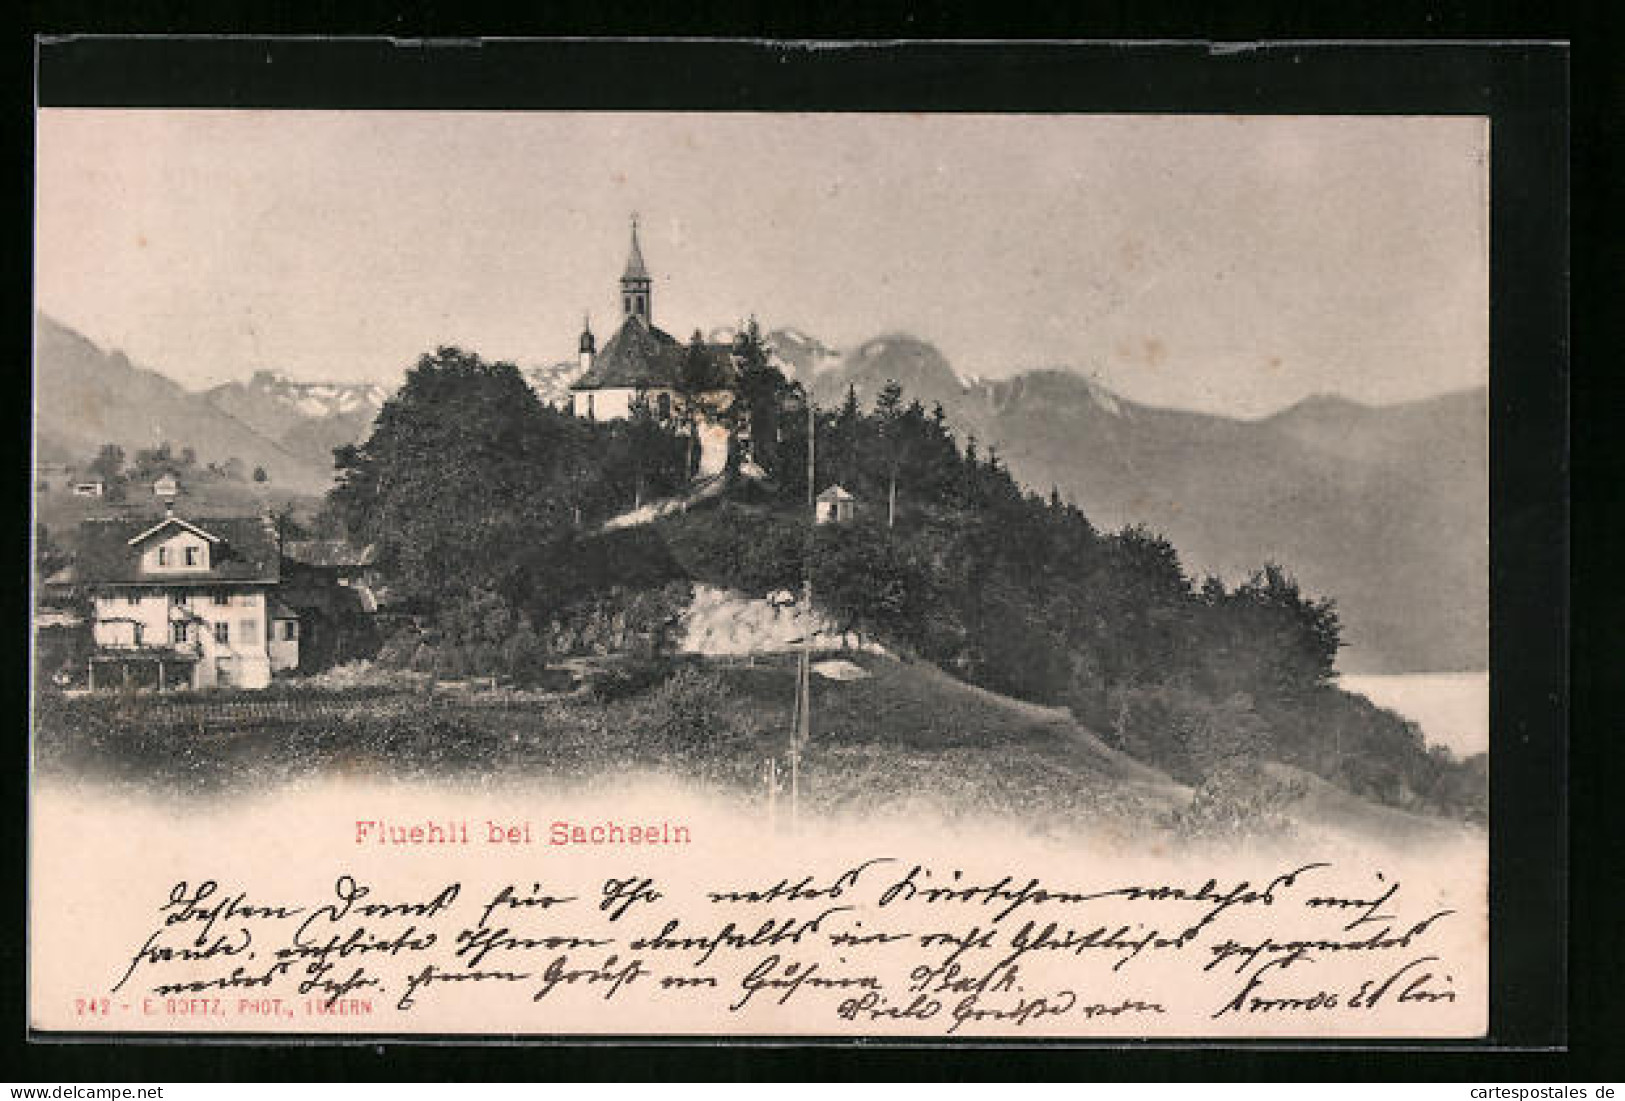 Fluehli bei Sachseln
Besten Dank für Ihr nettes Kärtchen welches mich
freute, entbiete Ihnen ebenfalls ein recht Glückliches gesegnetes
neues Jahr. Einen Gruß an
Viele Grüße von
242 - E. GOETZ, PHOT., LUZERN
cartespostales de